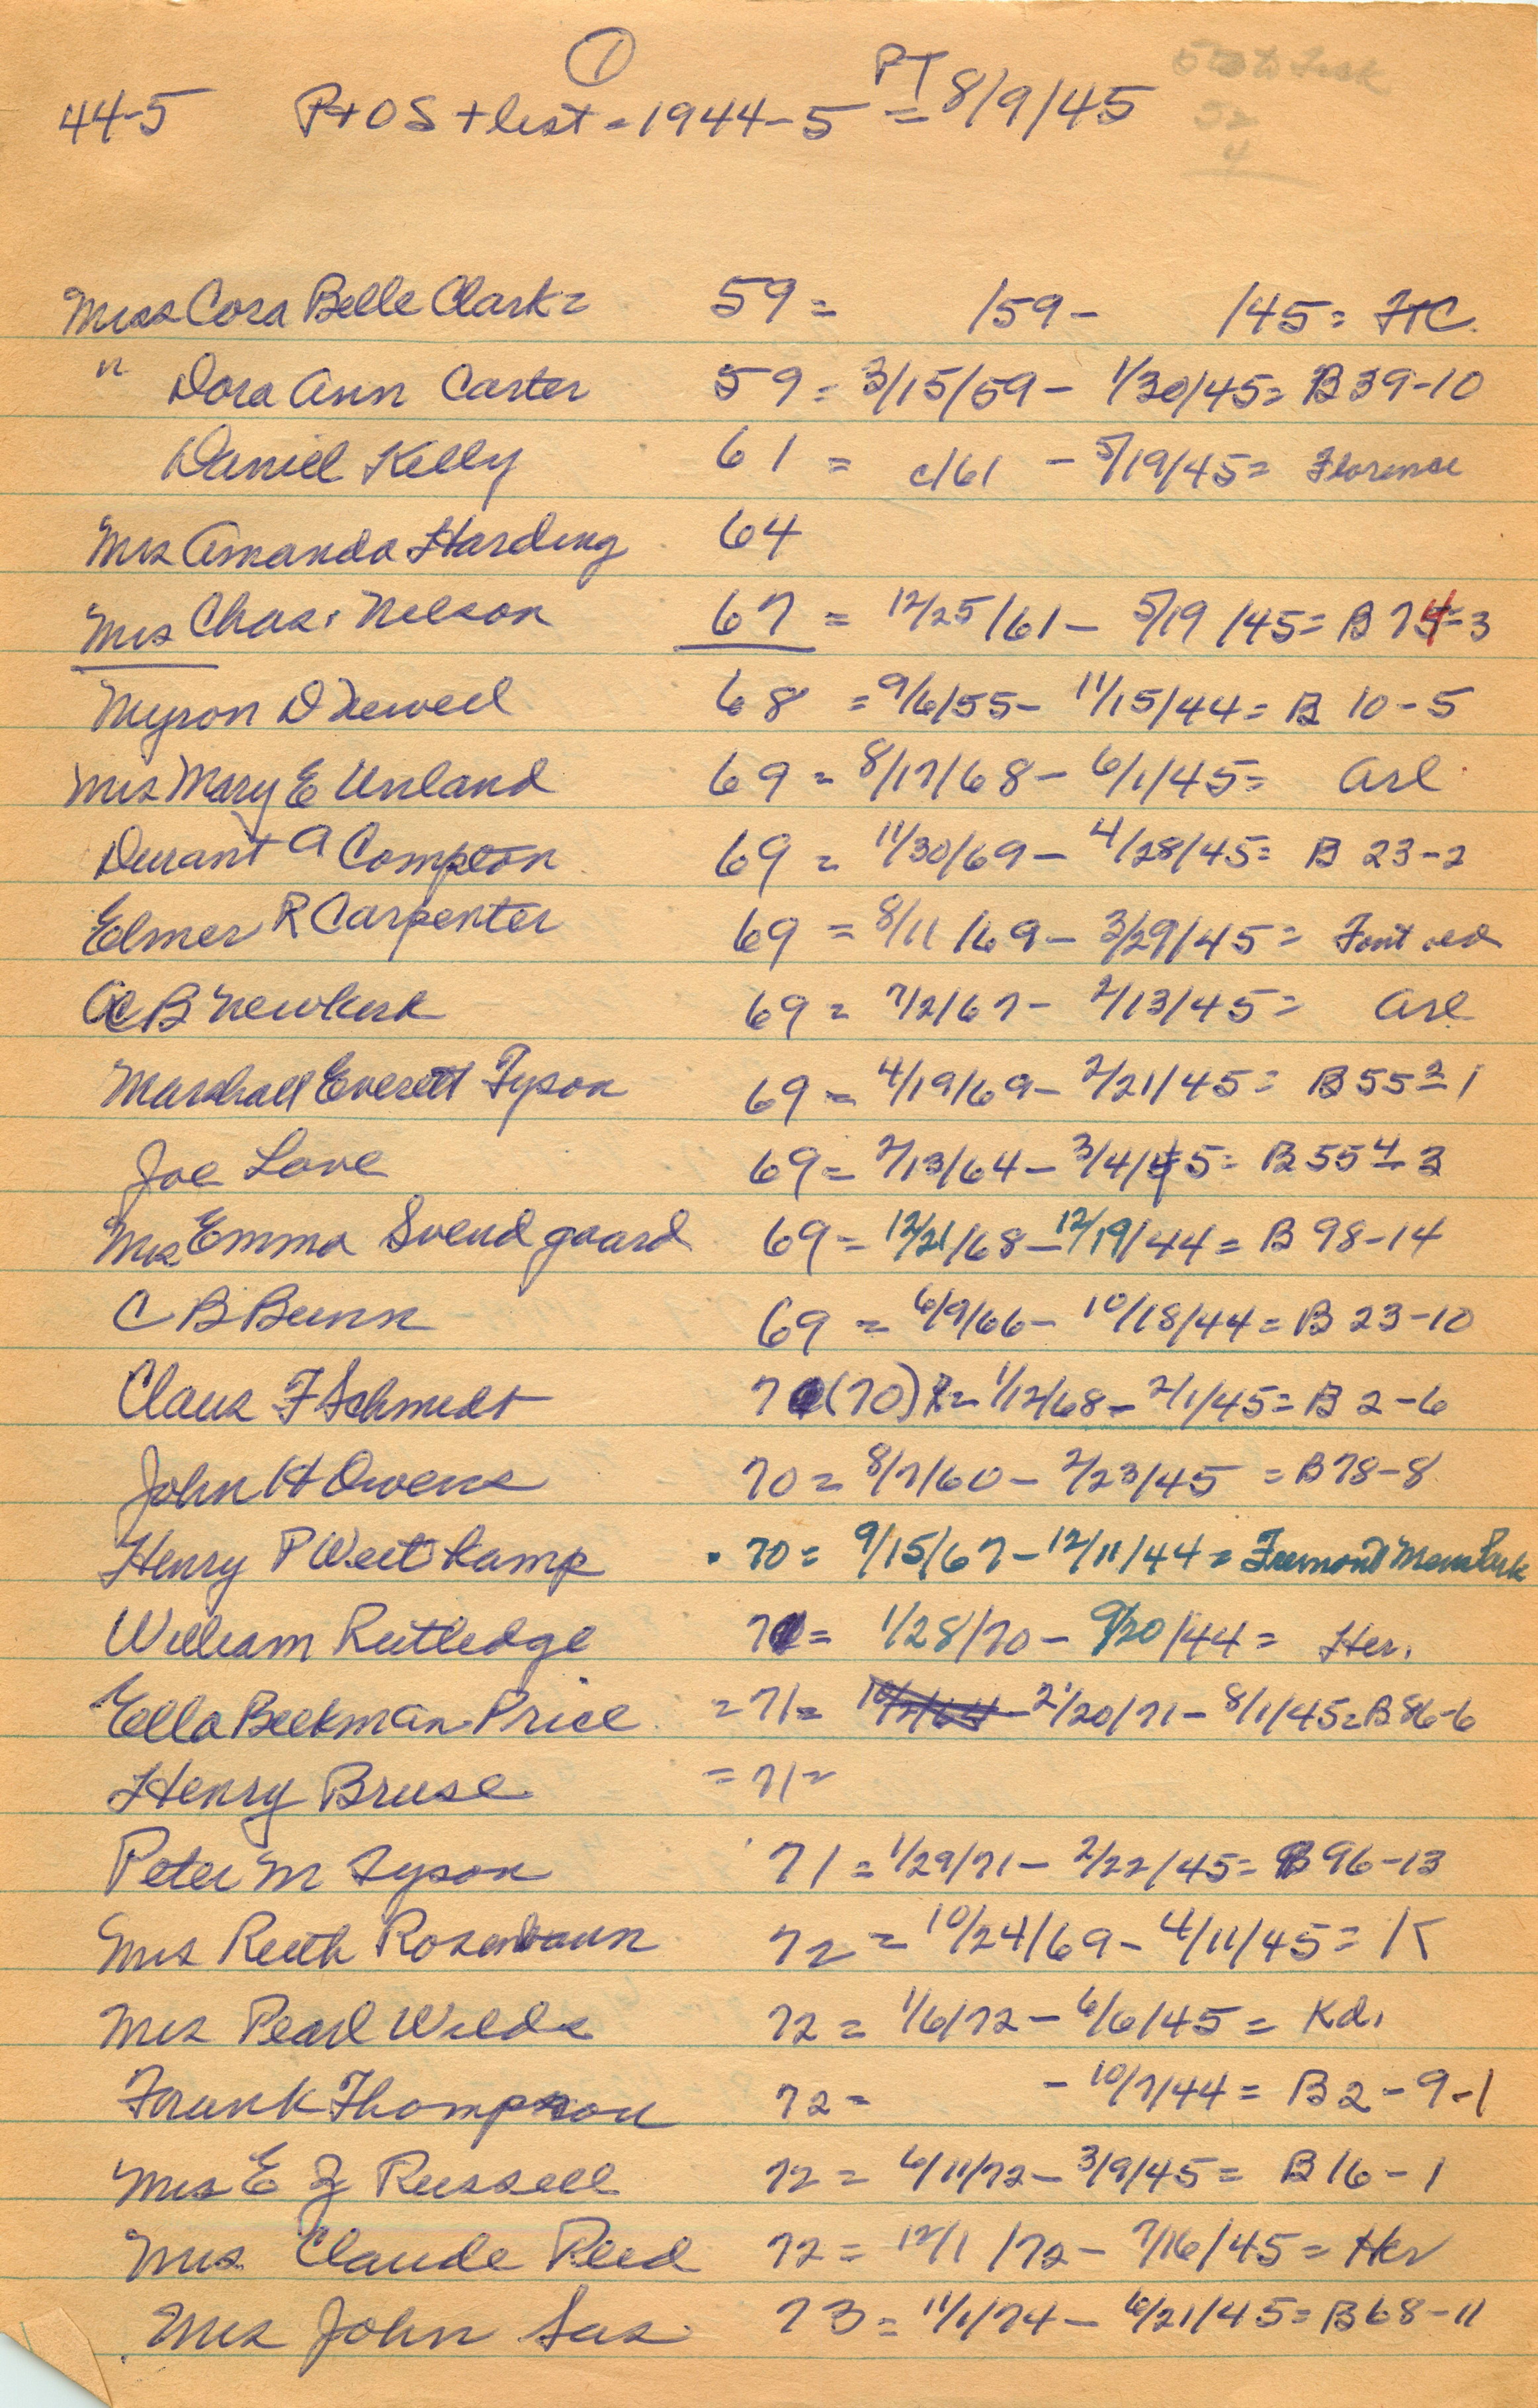 ①
44-5 P+OS+list - 1944-5 = PT 8/9/45
52
4
Miss Cora Belle Clark = 59 = /59 - /45 = FtC.
" Dora Ann Carter 59 = 3/15/59 - 1/30/45 = B 39-10
Daniel Kelly 61 = c/61 - 5/19/45 = Florence
Mrs Amanda Harding 64
Mrs Chas. Nelson 67 = 12/25/61 - 5/19/45 = B 74-3
Myron D Newell 68 = 9/6/55 - 11/15/44 = B 10-5
Mrs Mary E Unland 69 = 8/17/68 - 6/1/45 = Arl
Durant A Compton 69 = 11/30/69 - 4/28/45 = B 23-2
Elmer R Carpenter 69 = 8/11/69 - 3/29/45 = Font
B Newkirk 69 = 7/2/67 - 2/13/45 = Arl
Marshall Everett Tyson 69 = 4/19/69 - 2/21/45 = B 55 2-1
Joe Love 69 = 2/13/64 - 3/4/45 = B 55 4-3
Mrs Emma Svendgaard 69 = 12/21/68 - 12/19/44 = B 98-14
C B Bunn 69 = 6/9/66 - 10/18/44 = B 23-10
Claus F Schmidt 70 (70) = 1/12/68 - 2/1/45 = B 2-6
John H Owens 70 = 8/7/60 - 2/23/45 = B 78-8
Henry P Weitkamp 70 = 9/15/67 - 12/11/44 = Fremont Mem Park
William Rutledge 70 = 1/28/70 - 9/20/44 = Her.
Ella Beekman Price = 71 = 2/20/71 - 8/1/45 = B 86-6
Henry Bruse = 71 =
Peter M Tyson 71 = 1/29/71 - 2/22/45 = B 96-13
Mrs Ruth Rosenbaum 72 = 10/24/69 - 4/11/45 = K
Mrs Pearl Wilds 72 = 1/6/72 - 6/6/45 = Kd.
Frank Thompson 72 = - 10/7/44 = B 2-9-1
Mrs E Z Russell 72 = 6/11/72 - 3/9/45 = B 16-1
Mrs Claude Reed 72 = 12/1/72 - 7/16/45 = Her
Mrs John Sas 73 = 11/1/74 - 6/21/45 = B 68-11